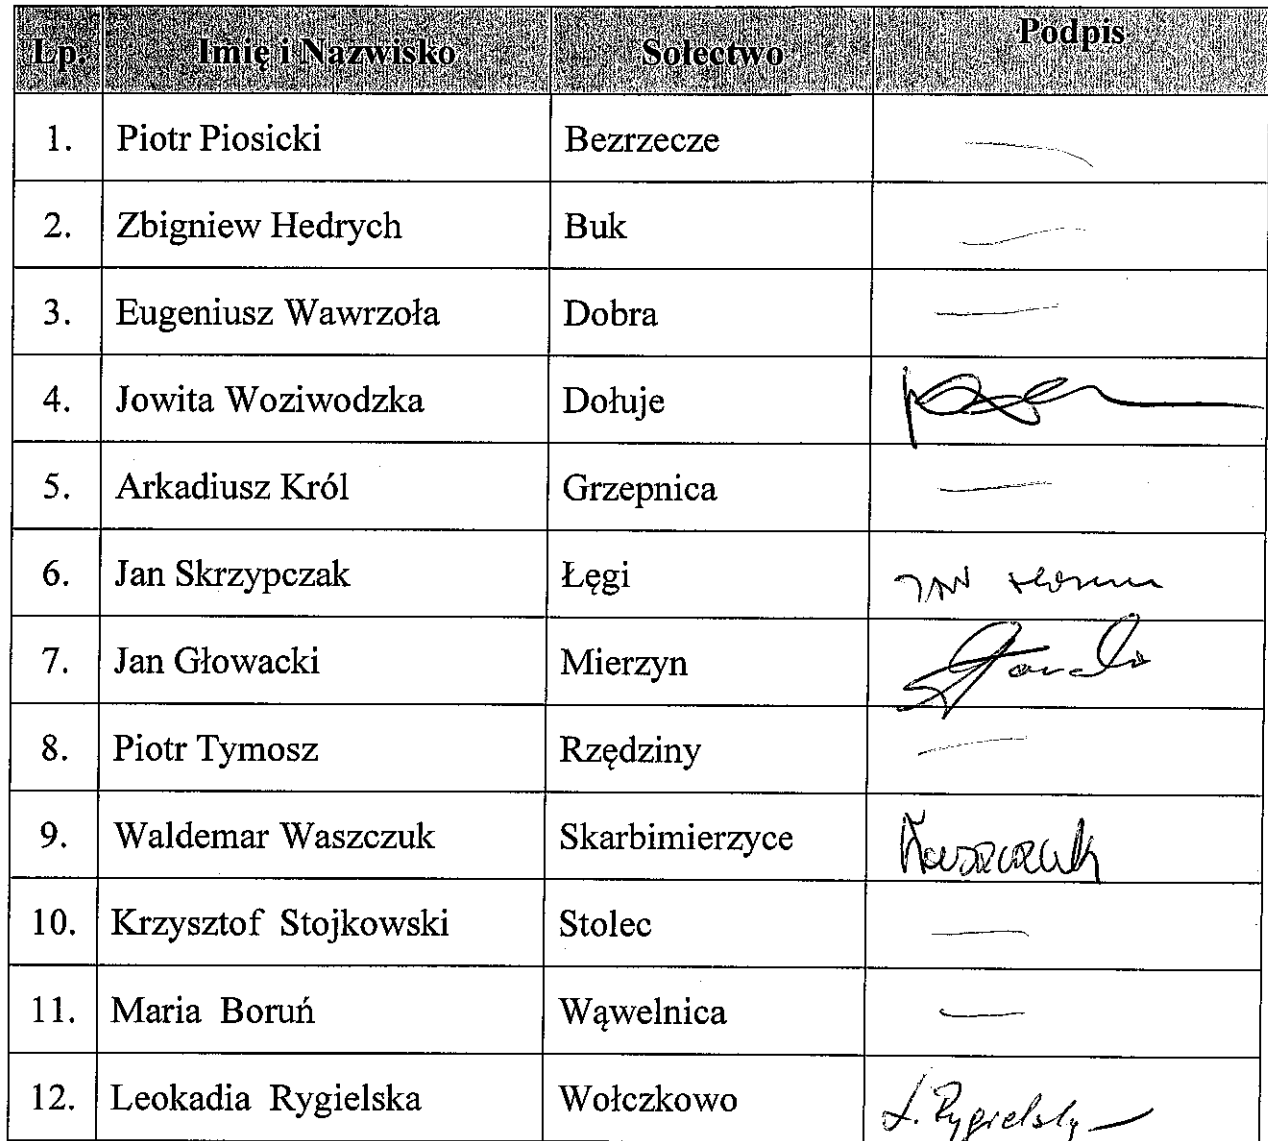 Lp. Imię i Nazwisko Sołectwo Podpis
1. Piotr Piosicki Bezrzecze
2. Zbigniew Hedrych Buk
3. Eugeniusz Wawrzoła Dobra
4. Jowita Woziwodzka Dołuje
5. Arkadiusz Król Grzepnica
6. Jan Skrzypczak Łęgi JAN
7. Jan Głowacki Mierzyn
8. Piotr Tymosz Rzędziny
9. Waldemar Waszczuk Skarbimierzyce Waszczuk
10. Krzysztof Stojkowski Stolec
11. Maria Boruń Wąwelnica
12. Leokadia Rygielska Wołczkowo L. Rygielska